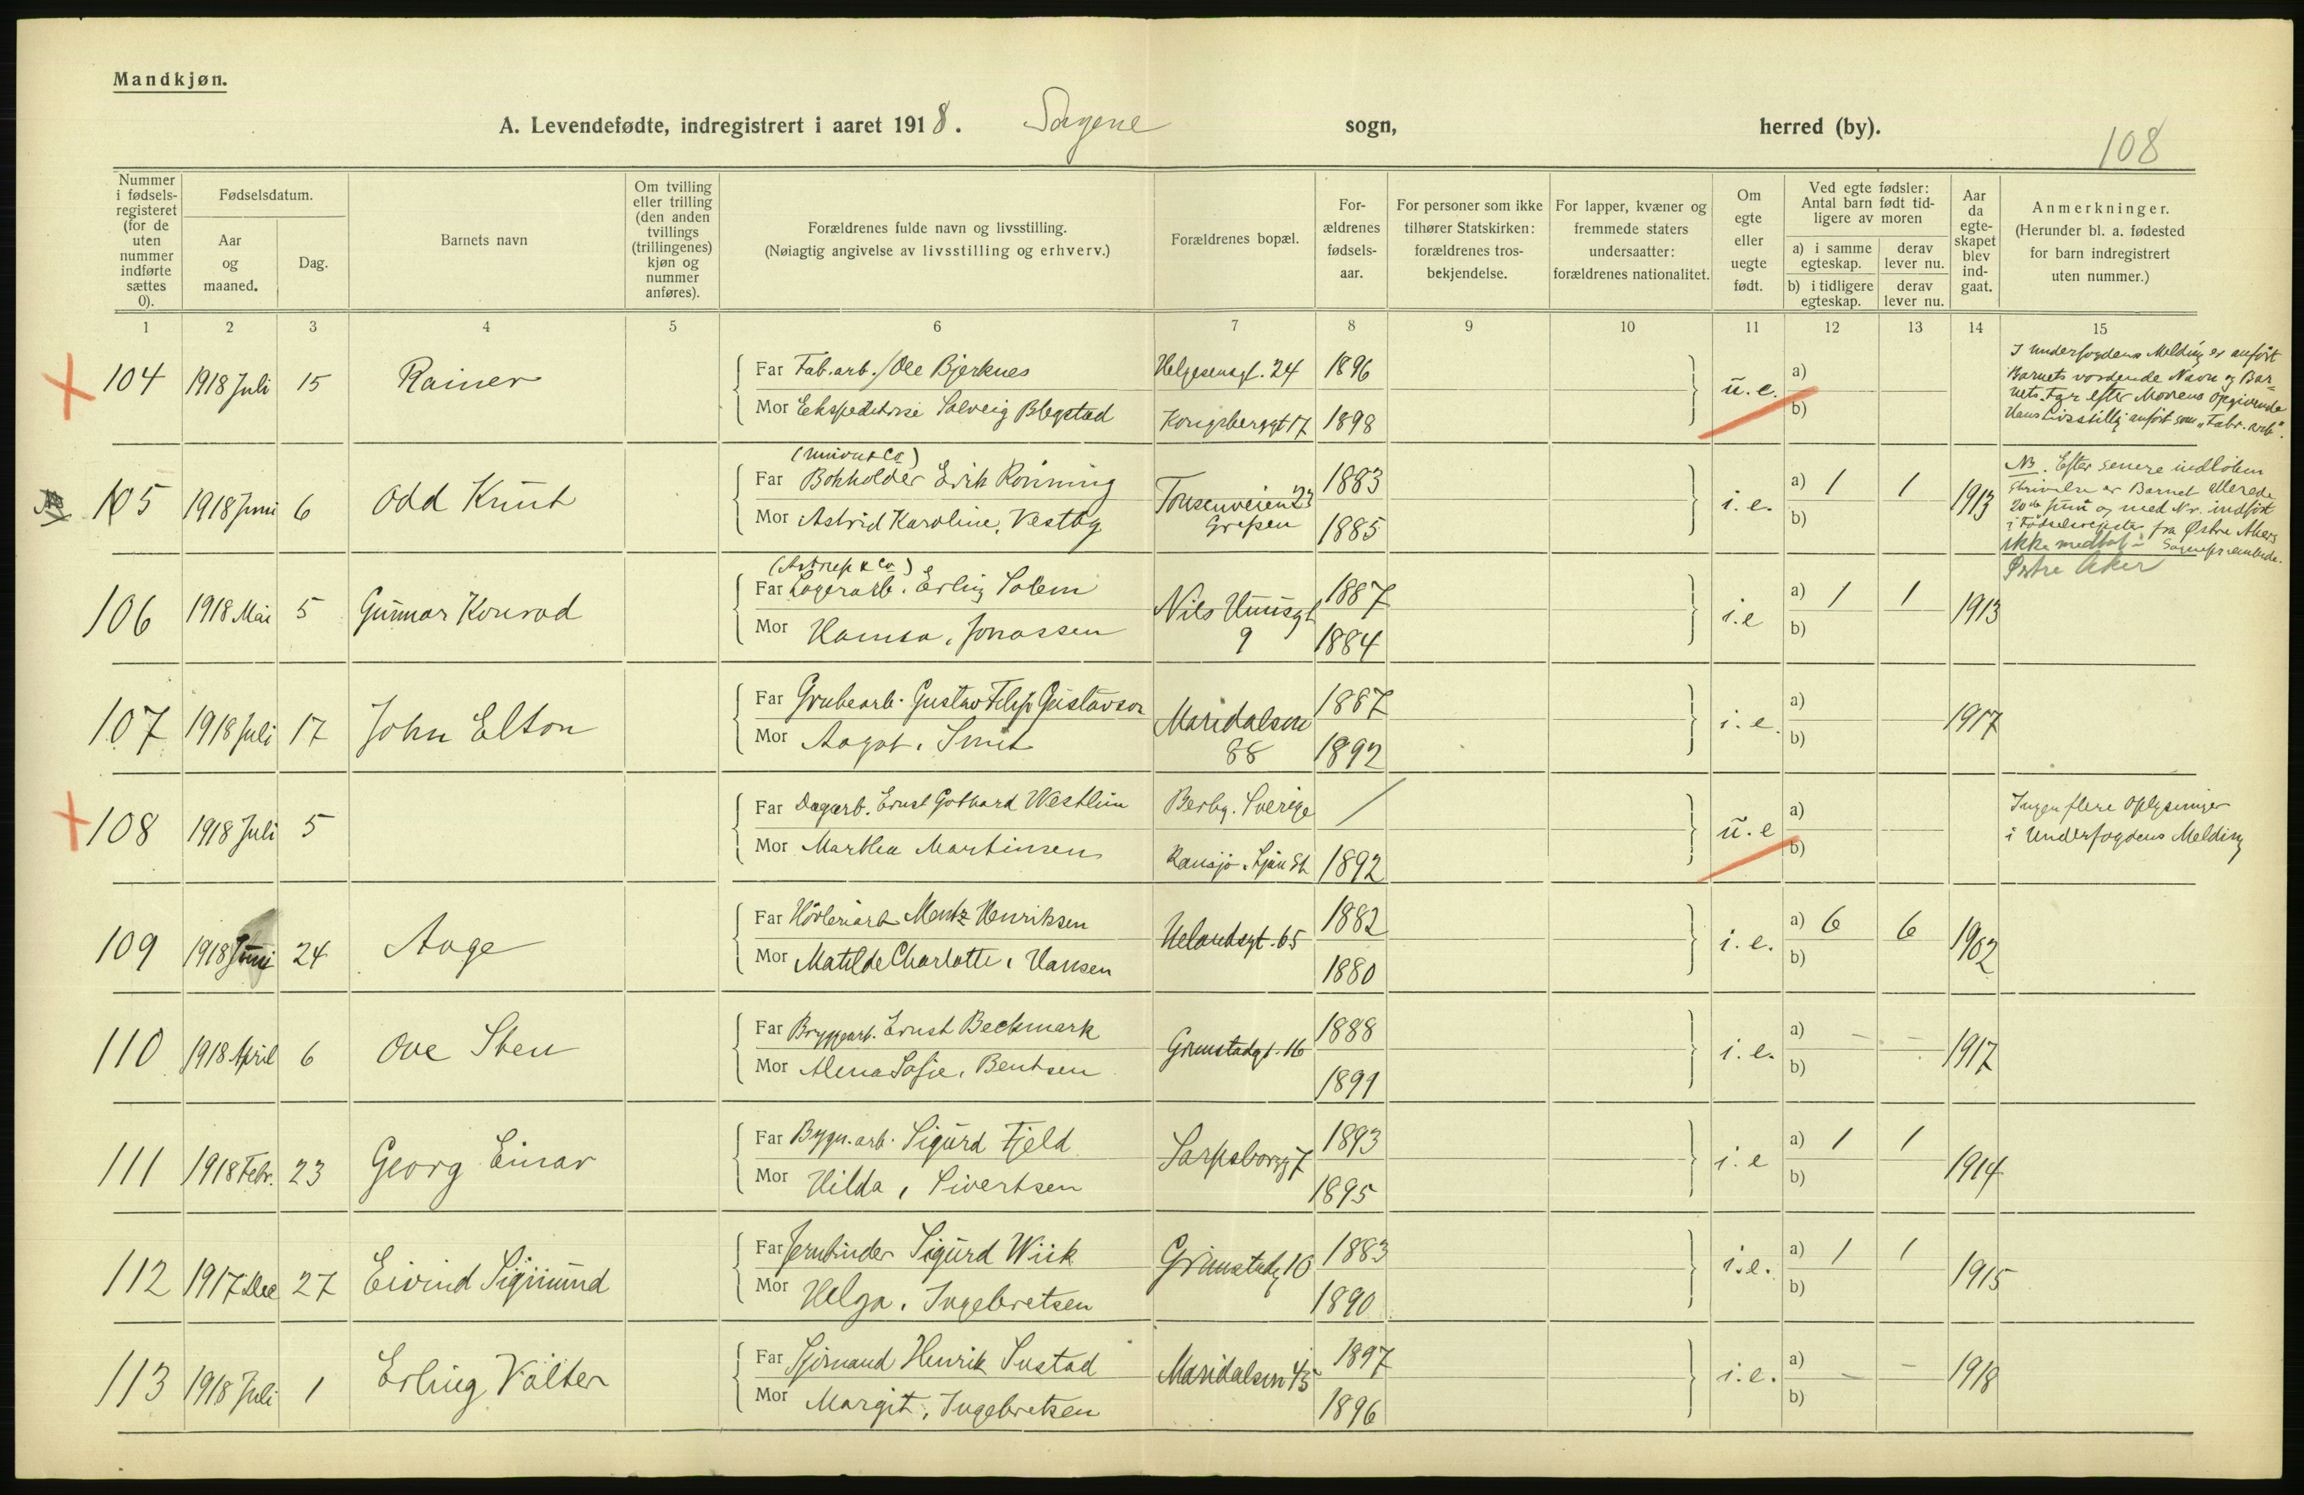 Mandkjøn.
A. Levendefødte, indregistrert i aaret 1918. Sagene sogn, herred (by).
108
Nummer i fødsels-registeret (for de uten nummer indførte sættes 0).
Fødselsdatum.
Aar og maaned.
Dag.
Barnets navn
Om tvilling eller trilling (den anden tvillings (trillingenes) kjøn og nummer anføres).
Forældrenes fulde navn og livsstilling.
(Nøiagtig angivelse av livsstilling og erhverv.)
Forældrenes bopæl.
For-ældrenes fødsels-aar.
For personer som ikke tilhører Statskirken: forældrenes tros-bekjendelse.
For lapper, kvæner og fremmede staters undersaatter: forældrenes nationalitet.
Om egte eller uegte født.
Ved egte fødsler: Antal barn født tid-ligere av moren
a) i samme egteskap.
derav lever nu.
b) i tidligere egteskap.
derav lever nu.
Aar da egte-skapet blev ind-gaat.
Anmerkninger.
(Herunder bl. a. fødested for barn indregistrert uten nummer.)
1 2 3 4 5 6 7 8 9 10 11 12 13 14 15
104 1918 Juli 15 Rainer
Far Fab.arb. Ole Bjerknes Helgesensgt. 24 1896
Mor Ekspeditrise Solveig Blegstad Kongsberggt 17 1898
u.e. a) b)
I Underfogdens Melding er anført
Barnets vordende Navn og Bar-
nets Far efter Morens Opgivende
Hans Livsstillg anført som "Fabr. arb".
105 1918 Juni 6 Odd Knut
(Union & Co)
Far Bokholder Erik Rønning Tonsenveien 23 Grefsen 1883
Mor Astrid Karoline, Vestby 1885
i.e. a) 1 1 b) 1913
NB. Efter senere indløben
Skrivelse er Barnet allerede
20de Juni og med Nr. indført
i Fødselsregister fra Østre Akers
Sogneprestembede.
ikke medtat i
Østre Aker
106 1918 Mai 5 Gunnar Konrad
Far Lagerarb. Erling Solem Nils Huusgt 9 1887
Mor Hansa, Jonassen 1884
i.e a) 1 1 b) 1913
107 1918 Juli 17 John Elton
Far Grubearb. Gustav Filip Gustavson Maridalsvn 88 1887
Mor Aagot, Smit 1892
i.e. a) b) 1917
108 1918 Juli 5
Far Dagarb. Ernst Gothard Westlin Berby. Sverige /
Mor Marthea Martinsen 1892
u.e a) b)
Ingen flere Oplysninger
i Underfogdens Melding
109 1918 Juni 24 Aage
Far Høvleriarb Mentz Henriksen Uelandsgt. 65 1882
Mor Matilde Charlotte, Hansen 1880
i.e. a) 6 6 b) 1902
110 1918 April 6 Ove Sten
Far Bryggearb. Ernst Beckmark Grimstadgt. 16 1888
Mor Alma Sofie, Bentsen 1891
i.e. a) - - b) 1917
111 1918 Febr. 23 Georg Einar
Far Bygn.arb. Sigurd Fjeld Sarpsborgg 7 1893
Mor Hilda, Sivertsen 1895
i.e a) 1 1 b) 1914
112 1917 Dec 27 Eivind Sigmund
Far Jernbinder Sigurd Wiik Grimstadg 10 1883
Mor Helga, Ingebretsen 1890
i.e. a) 1 1 b) 1915
113 1918 Juli 1 Erling Valter
Far Sjømand Henrik Sustad Maridalsvn 45 1897
Mor Margit, Ingebretsen 1896
i.e. a) - - b) 1918